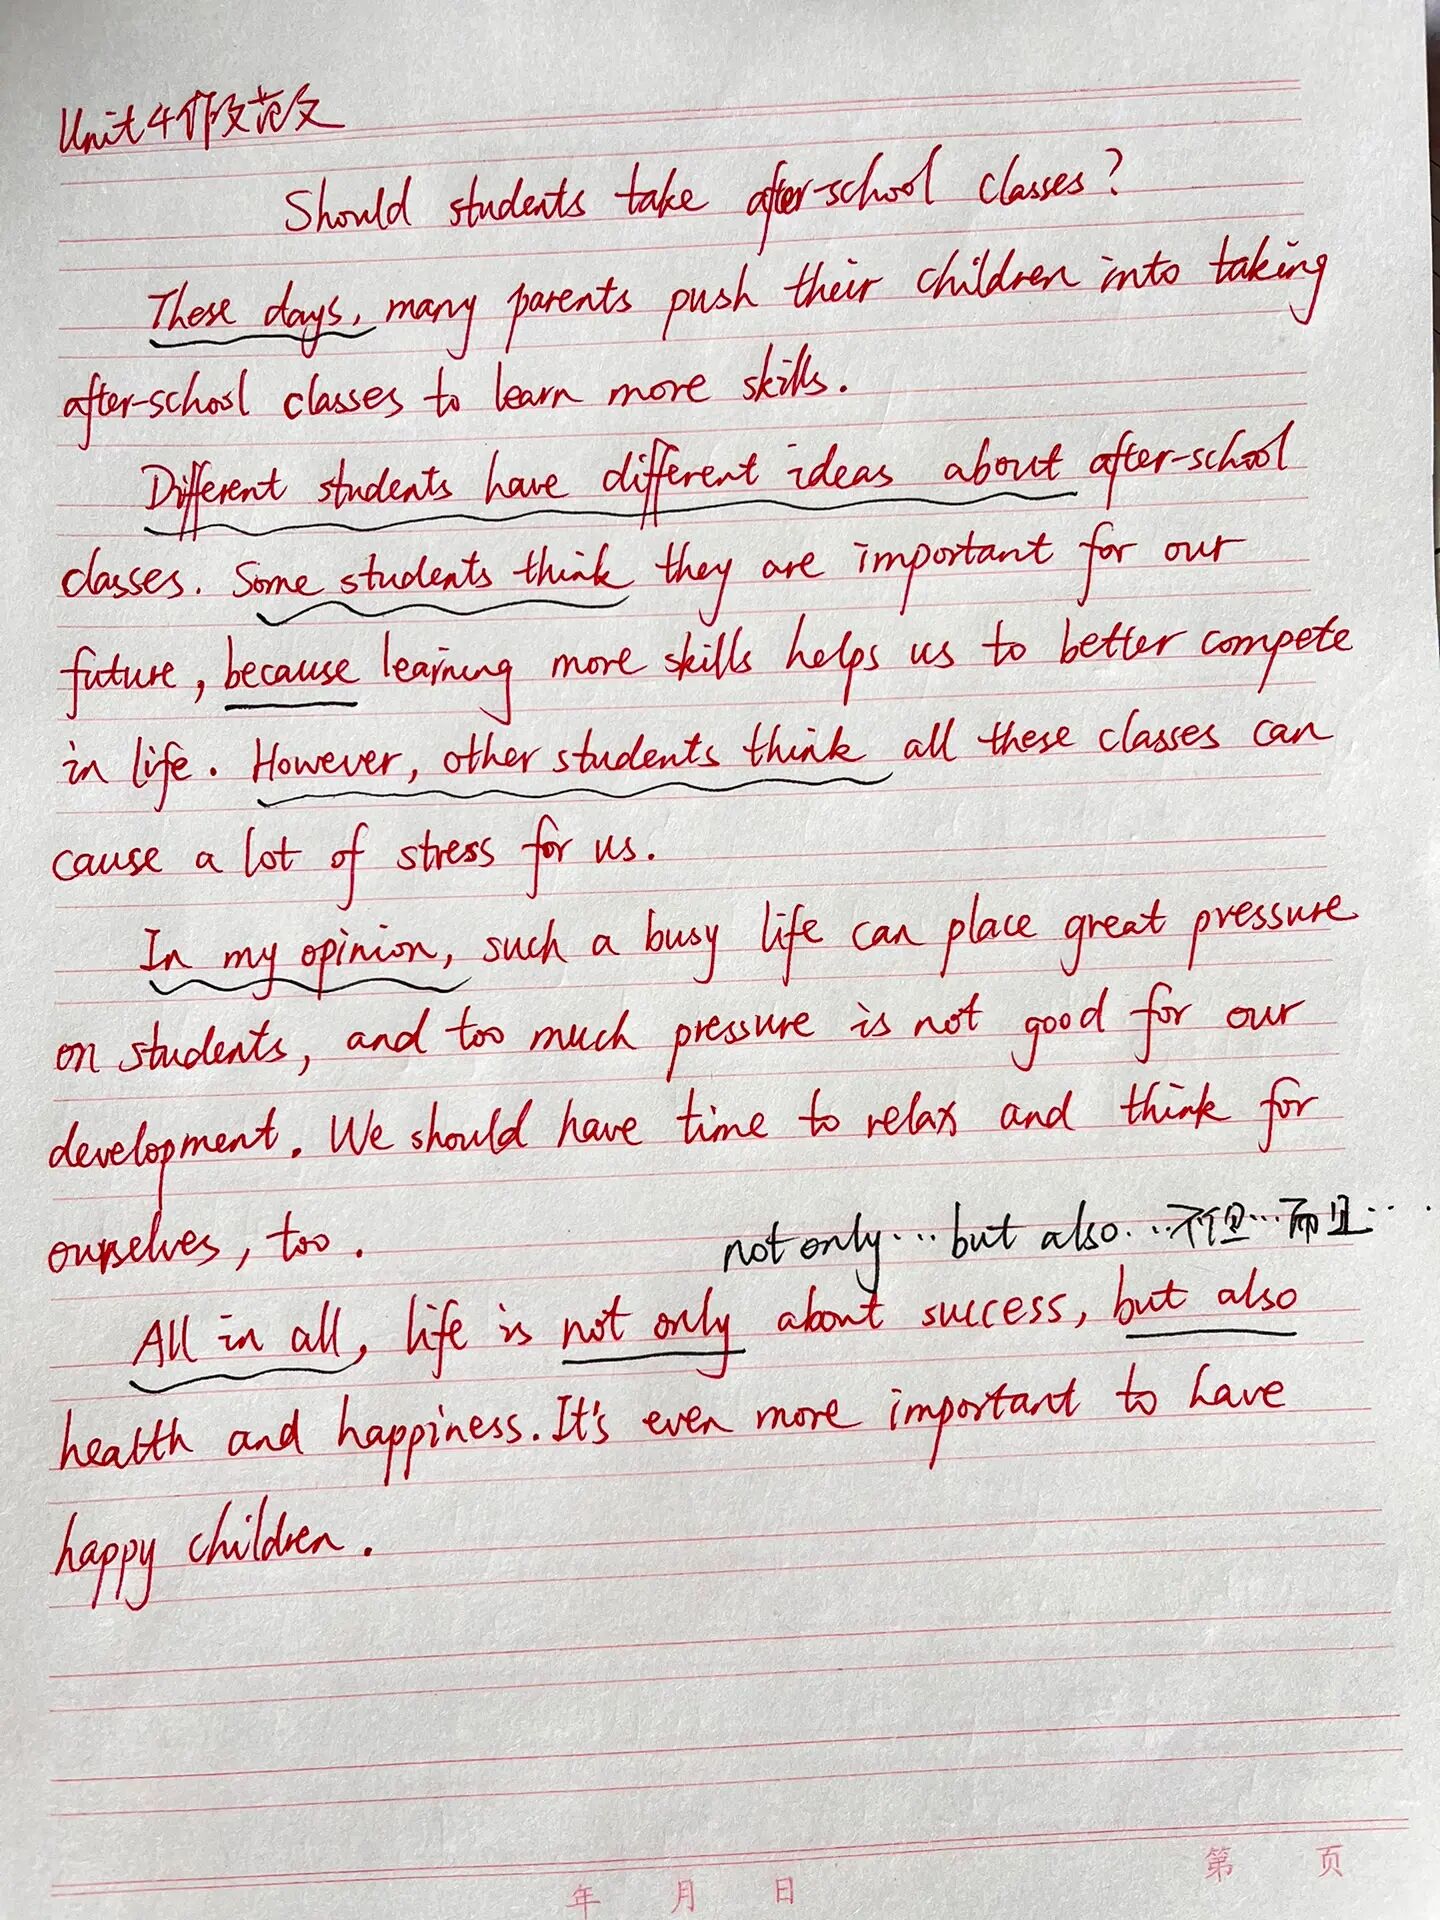 Unit4作文范文
Should students take after-school classes?
These days, many parents push their children into taking
after-school classes to learn more skills.
Different students have different ideas about after-school
classes. Some students think they are important for our
future, because learning more skills helps us to better compete
in life. However, other students think all these classes can
cause a lot of stress for us.
In my opinion, such a busy life can place great pressure
on students, and too much pressure is not good for our
development. We should have time to relax and think for
ourselves, too.
not only...but also...不但...而且...
All in all, life is not only about success, but also
health and happiness. It's even more important to have
happy children.
第 页
年 月 日